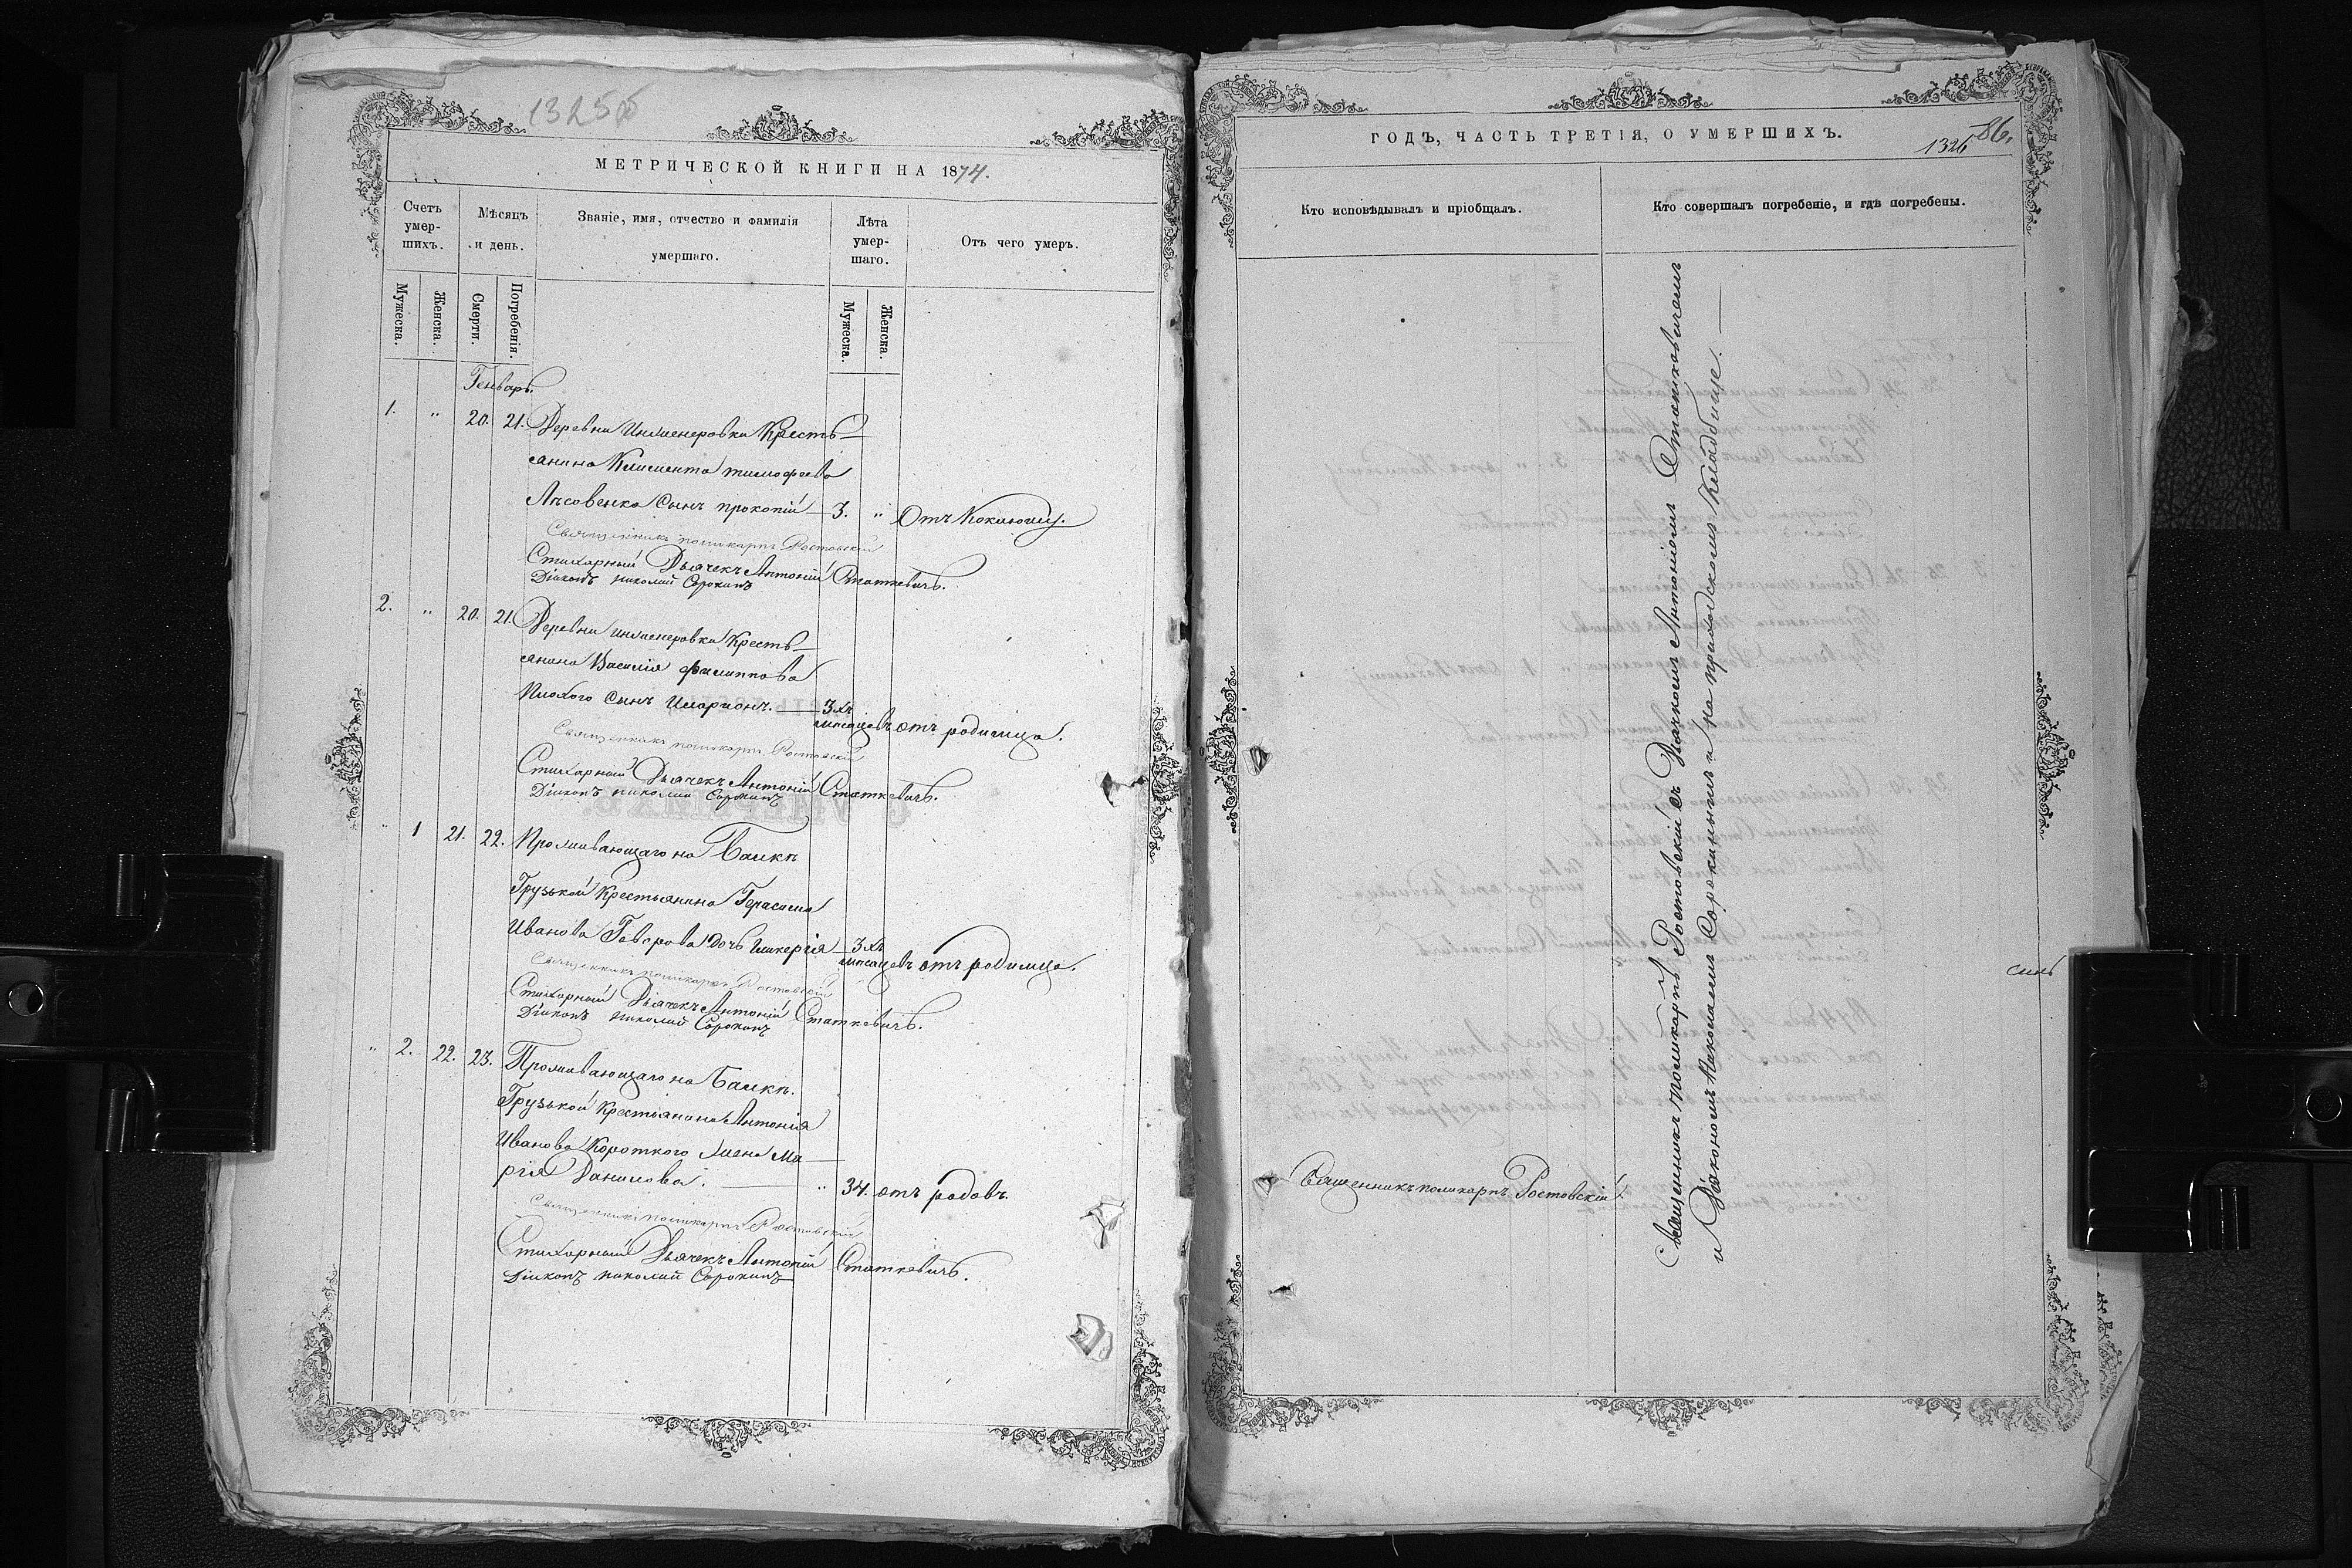 1325об
МЕТРИЧЕСКОЙ КНИГИ НА 1874.
Счетъ умер-шихъ.
Мѣсяцъ и день.
Званіе, имя, отчество и фамилія умершаго.
Лѣта умер-шаго.
Отъ чего умеръ.
Мужеска.
Женска.
Смерти.
Погребенія.
Мужеска.
Женска.
Генварь.
1. " 20. 21. Деревни Инженеровки Кресть-
янина Климента тимофеева
Лѣсовенка Сынъ прокопій — 3. " Отъ Коклюшу.
Священникъ поликарпъ Ростовскій
Стихарный Дьячекъ Антоній Статкевичъ.
Діаконъ николай Сорокинъ
2. " 20. 21. Деревни инженеровки Кресть-
янина Василія филиппова
Плохого Сынъ Иларионъ. — 3хъ
мѣсяцевъ отъ родимца.
Священникъ поликарпъ Ростовскій
Стихарный Дьячекъ Антоній Статкевичъ.
Діаконъ николай Сорокинъ
" 1 21. 22. Проживающаго на Балкѣ
Грузькой Крестьянина Герасима
Иванова Говорова дочь Гликерія — 3хъ
мѣсяцевъ отъ родимца.
Священникъ поликарпъ Ростовскій
Стихарный Дьячекъ Антоній Статкевичъ.
Діаконъ николай Сорокинъ
" 2. 22. 23. Проживающаго на Балкѣ.
Грузькой Крестьянина Антонія
Иванова Короткого жена Ма-
рія Данилова. — " 34. отъ родовъ.
Священникъ поликарпъ Ростовскій
Стихарный Дьячекъ Антоній Статкевичъ.
Діаконъ николай Сорокинъ
ГОДЪ, ЧАСТЬ ТРЕТІЯ, О УМЕРШИХЪ.
1326
86.
Кто исповѣдывалъ и пріобщалъ.
Кто совершалъ погребеніе, и гдѣ погребены.
Священникъ поликарпъ Ростовскій.
Священникъ поликарпъ Ростовскій съ Дьячкомъ Антоніемъ Статкевичемъ
и Діакономъ Николаемъ Сорокинымъ и на приходскомъ Кладбище. —